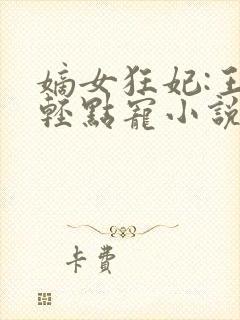 嫡女狂妃:王
輕點寵小說
卡費